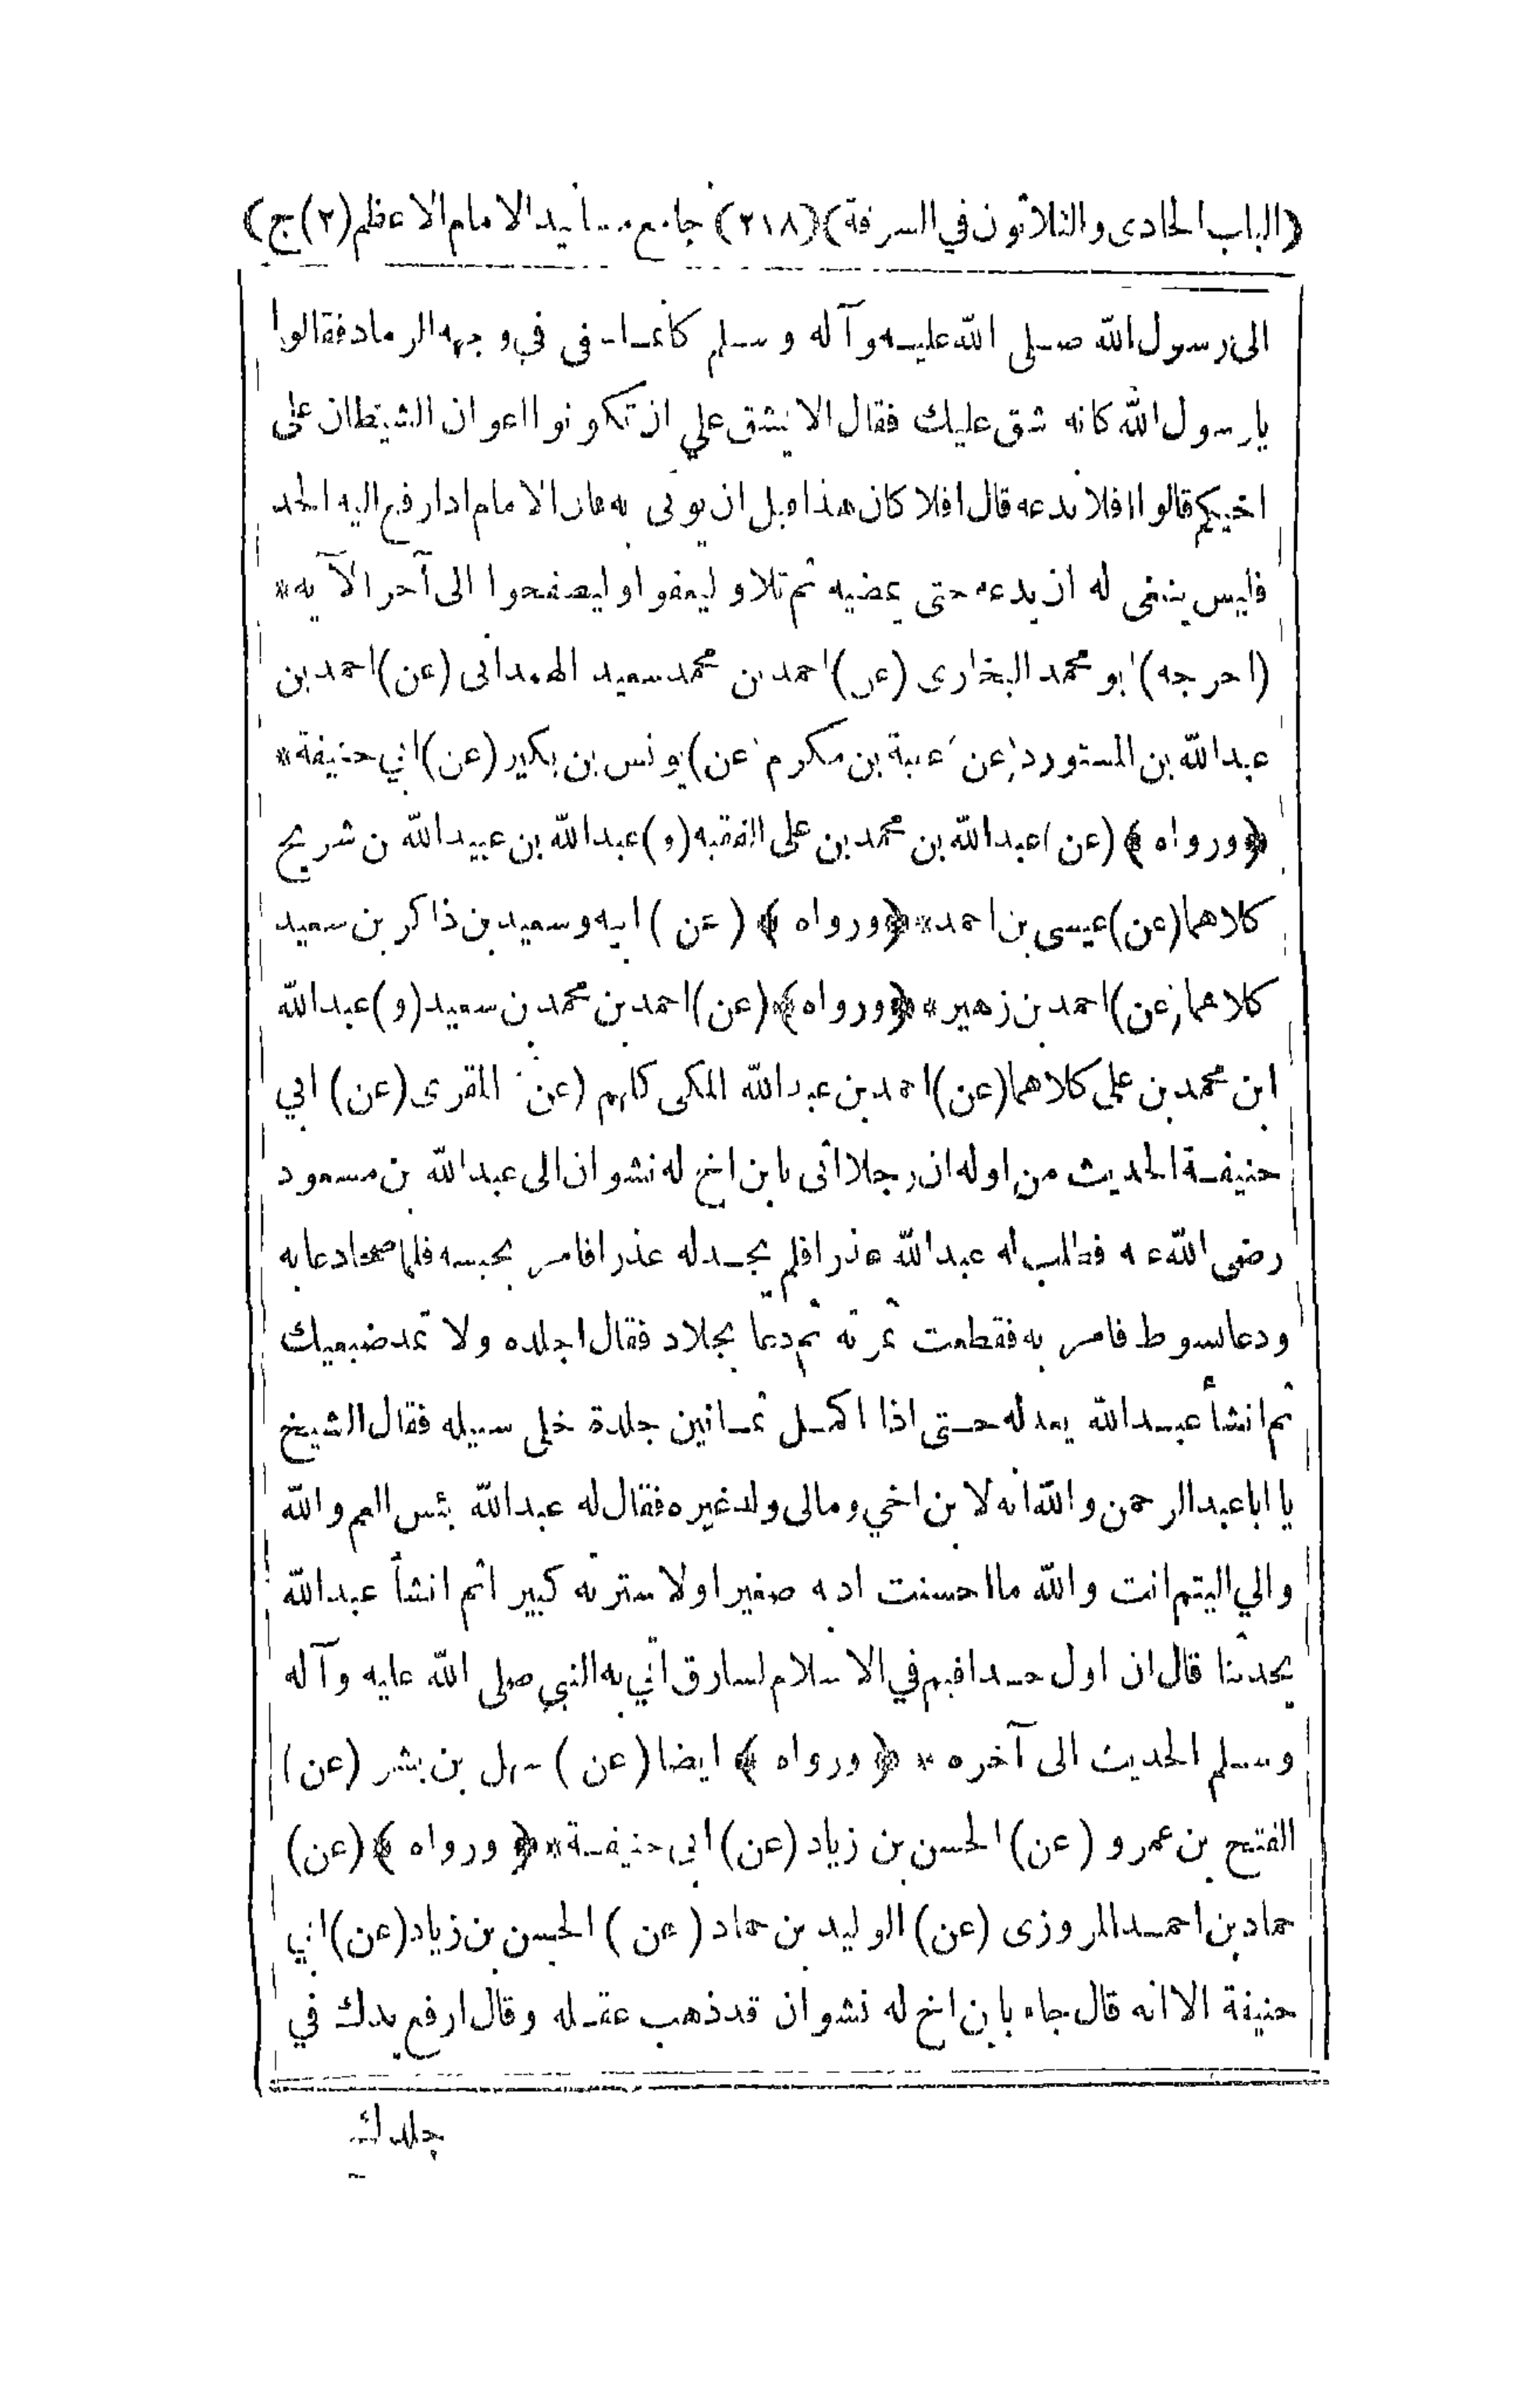 (الباب الحادى والثلاثون في السرقة) (٢١٨) جامع مسانيد الامام الاعظم (٢) ج)
الى رسول الله صلى الله عليه وآله وسلم كأنما سفى في وجهه الرماد فقالوا
يا رسول الله كانه شق عليك فقال الا يشق علي ان تكونوا اعوان الشيطان على
اخيكم قالوا افلا ندعه قال افلا كان هذا قبل ان يوتى به فان الامام اذا رفع اليه الحد
فليس ينبغى له ان يدعه حتى يمضيه ثم تلا وليعفوا وليصفحوا الى آخر الآية *
(اخرجه) ابو محمد البخارى (عن) احمد بن محمد سعيد الهمدانى (عن) احمد بن
عبد الله بن المستورد (عن) عقبة بن مكرم (عن) يونس بن بكير (عن) ابي حنيفة *
﴿ورواه﴾ (عن) عبد الله بن محمد بن على الفقيه (و) عبد الله بن عبيد الله بن شريح
كلاهما (عن) عيسى بن احمد * ﴿ورواه﴾ (عن) ابيه وسعيد بن ذاكر بن سعيد
كلاهما (عن) احمد بن زهير * ﴿ورواه﴾ (عن) احمد بن محمد بن سعيد (و) عبد الله
ابن محمد بن على كلاهما (عن) احمد بن عبد الله المكى كلهم (عن) المقرى (عن) ابي
حنيفة الحديث من اوله ان رجلا اتى بابن اخ له نشوان الى عبد الله بن مسعود
رضى الله عنه فطلب له عبد الله عذرا فلم يجد له عذرا فامر بحبسه فلما صحا دعا به
ودعا بسوط فامر به فقطعت ثمرته ثم دعا بجلاد فقال اجلده ولا تمد ضبعيك
ثم انشأ عبد الله يعد له حتى اذا اكمل ثمانين جلدة خلى سبيله فقال الشيخ
يا ابا عبد الرحمن والله انه لابن اخي ومالى ولد غيره فقال له عبد الله بئس العم والله
والي اليتيم انت والله ما احسنت ادبه صغيرا ولا سترته كبيرا ثم انشأ عبد الله
يحدثنا قال ان اول حد اقيم في الاسلام لسارق اتي به النبي صلى الله عليه وآله
وسلم الحديث الى آخره * ﴿ورواه﴾ ايضا (عن) سهل بن بشر (عن)
الفتح بن عمرو (عن) الحسن بن زياد (عن) ابى حنيفة * ﴿ورواه﴾ (عن)
حماد بن احمد المروزى (عن) الوليد بن حماد (عن) الحسن بن زياد (عن) ابي
حنيفة الا انه قال جاء بابن اخ له نشوان قد ذهب عقله وقال ارفع يدك في
جلدك